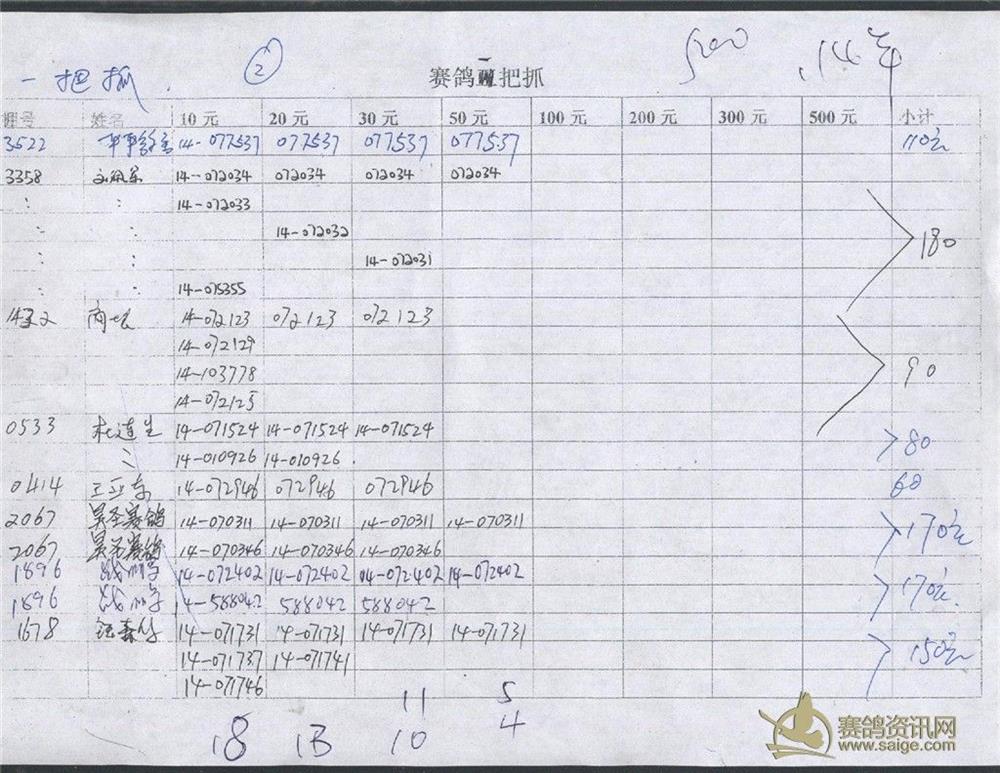 一把抓 ② 5200 14年
赛鸽一把抓
棚号 姓名 10元 20元 30元 50元 100元 200元 300元 500元 小计
3522 14-077537 077537 077537 077537 110元
3358 14-072034 072034 072034 072034
14-072033
14-072032 180
14-072031
14-075355
14-072123 072123 072123
14-072129
14-103778 90
14-072125
0533 杜连生 14-071524 14-071524 14-071524
14-010926 14-010926 80
0414 王亚东 14-072946 072946 072946 60
2067 昊圣赛鸽 14-070311 14-070311 14-070311 14-070311 170元
2067 昊圣赛鸽 14-070346 14-070346 14-070346
1896 14-072402 14-072402 14-072402 14-072402 170元
1896 14-588042 588042 588042
1678 14-071731 14-071731 14-071731 14-071731
14-071737 14-071741 150元
14-071746
11 5
18 13 10 4
赛鸽资讯网
www.saige.com